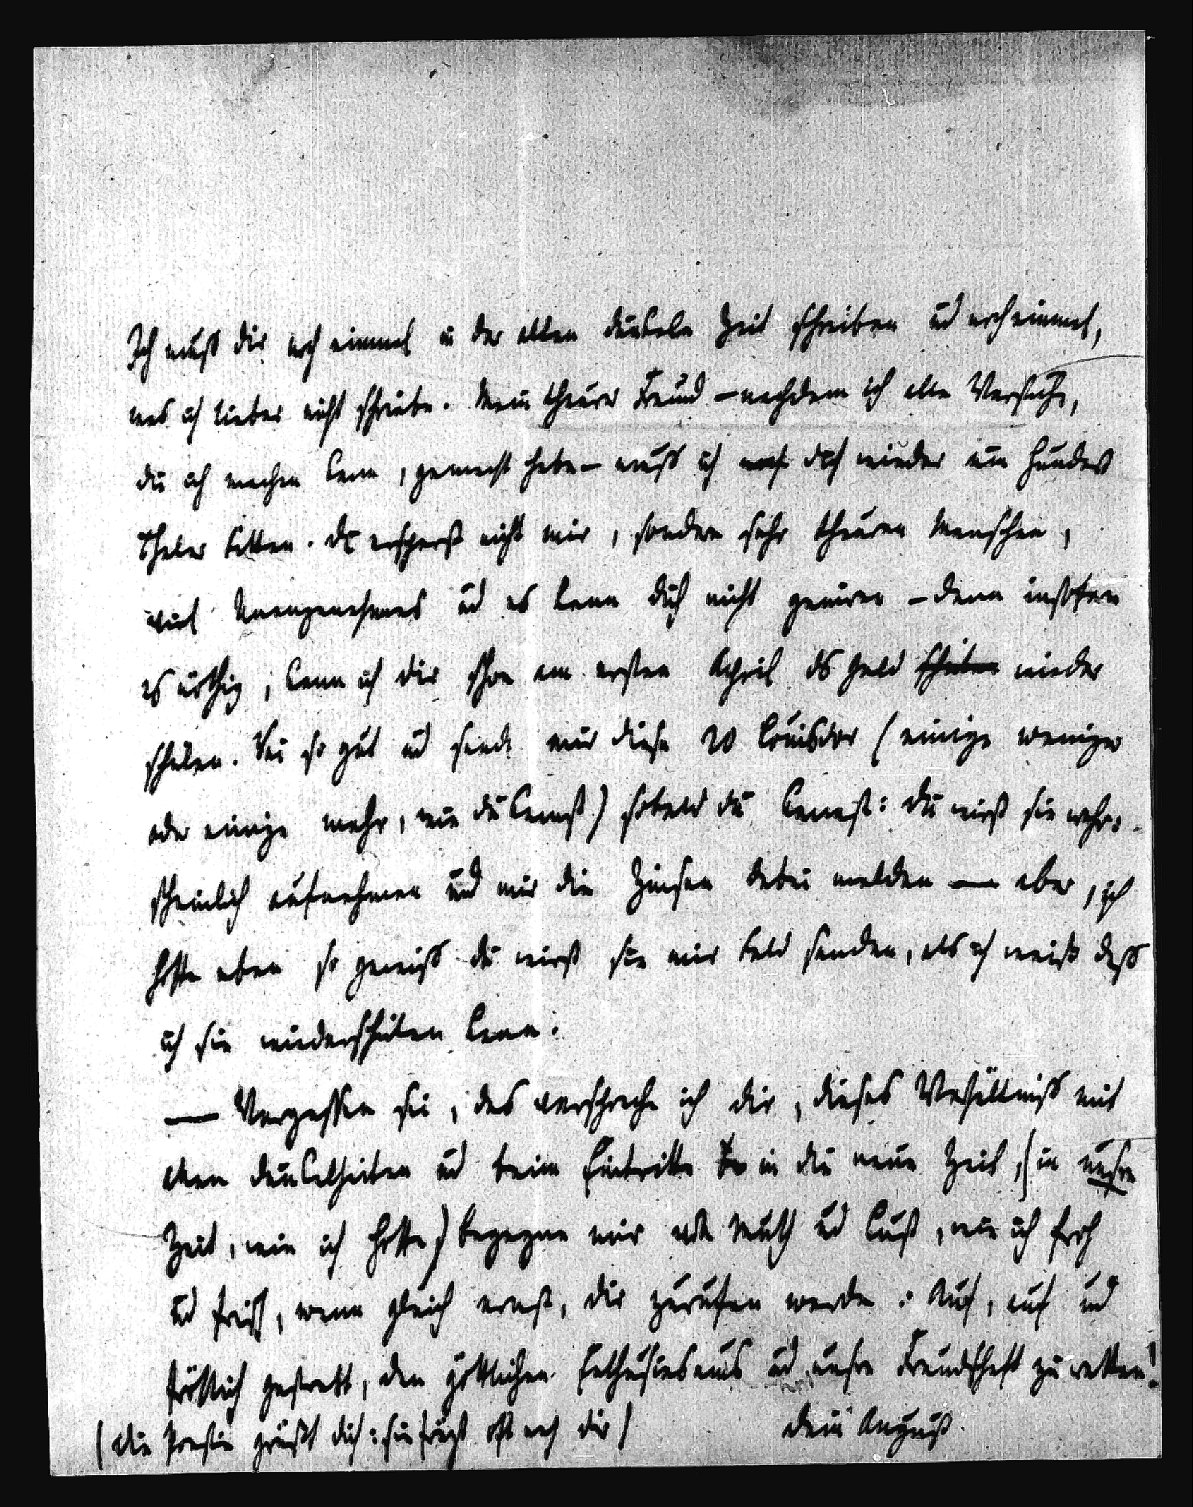 Ich muß dir noch einmal in der alten dunkeln Zeit schreiben und noch einmal,
was ich lieber nicht schriebe. Mein theurer Freund – nachdem ich alle Versuche,
die ich machen kann, gemacht habe – muß ich doch wieder um hundert
Thaler bitten. Du ersparst nicht mir, sondern sehr theuren Menschen,
viel Unangenehmes und es kann dich nicht geniren – denn insofern
es nöthig, kann ich dir schon am ersten April das Geld wieder
schicken. Sei so gut und sende mir diese 20 Louisdor (einige weniger
oder einige mehr, wie du kannst) sobald du kannst: du wirst sie wahr-
scheinlich aufnehmen und mir die Zinsen dabei melden — aber, ich
hoffe eben so gewiß du wirst sie mir bald senden, als ich weiß daß
ich sie wiederschicken kann.
— Vergessen sei, das verspreche ich dir, dieses Verhältniß mit
allen Dunkelheiten und beim Eintritte in die neue Zeit, (in unsre
Zeit, wie ich hoffe) begegne mir mit Muth und Lust, wie ich froh
und frisch, wenn gleich ernst, dir zurufen werde: Auf, auf und
fröhlich gestrebt, den göttlichen Enthusiasmus und unsre Freundschaft zu retten!
(die grüßt dich: sie frägt oft nach dir) dein August.